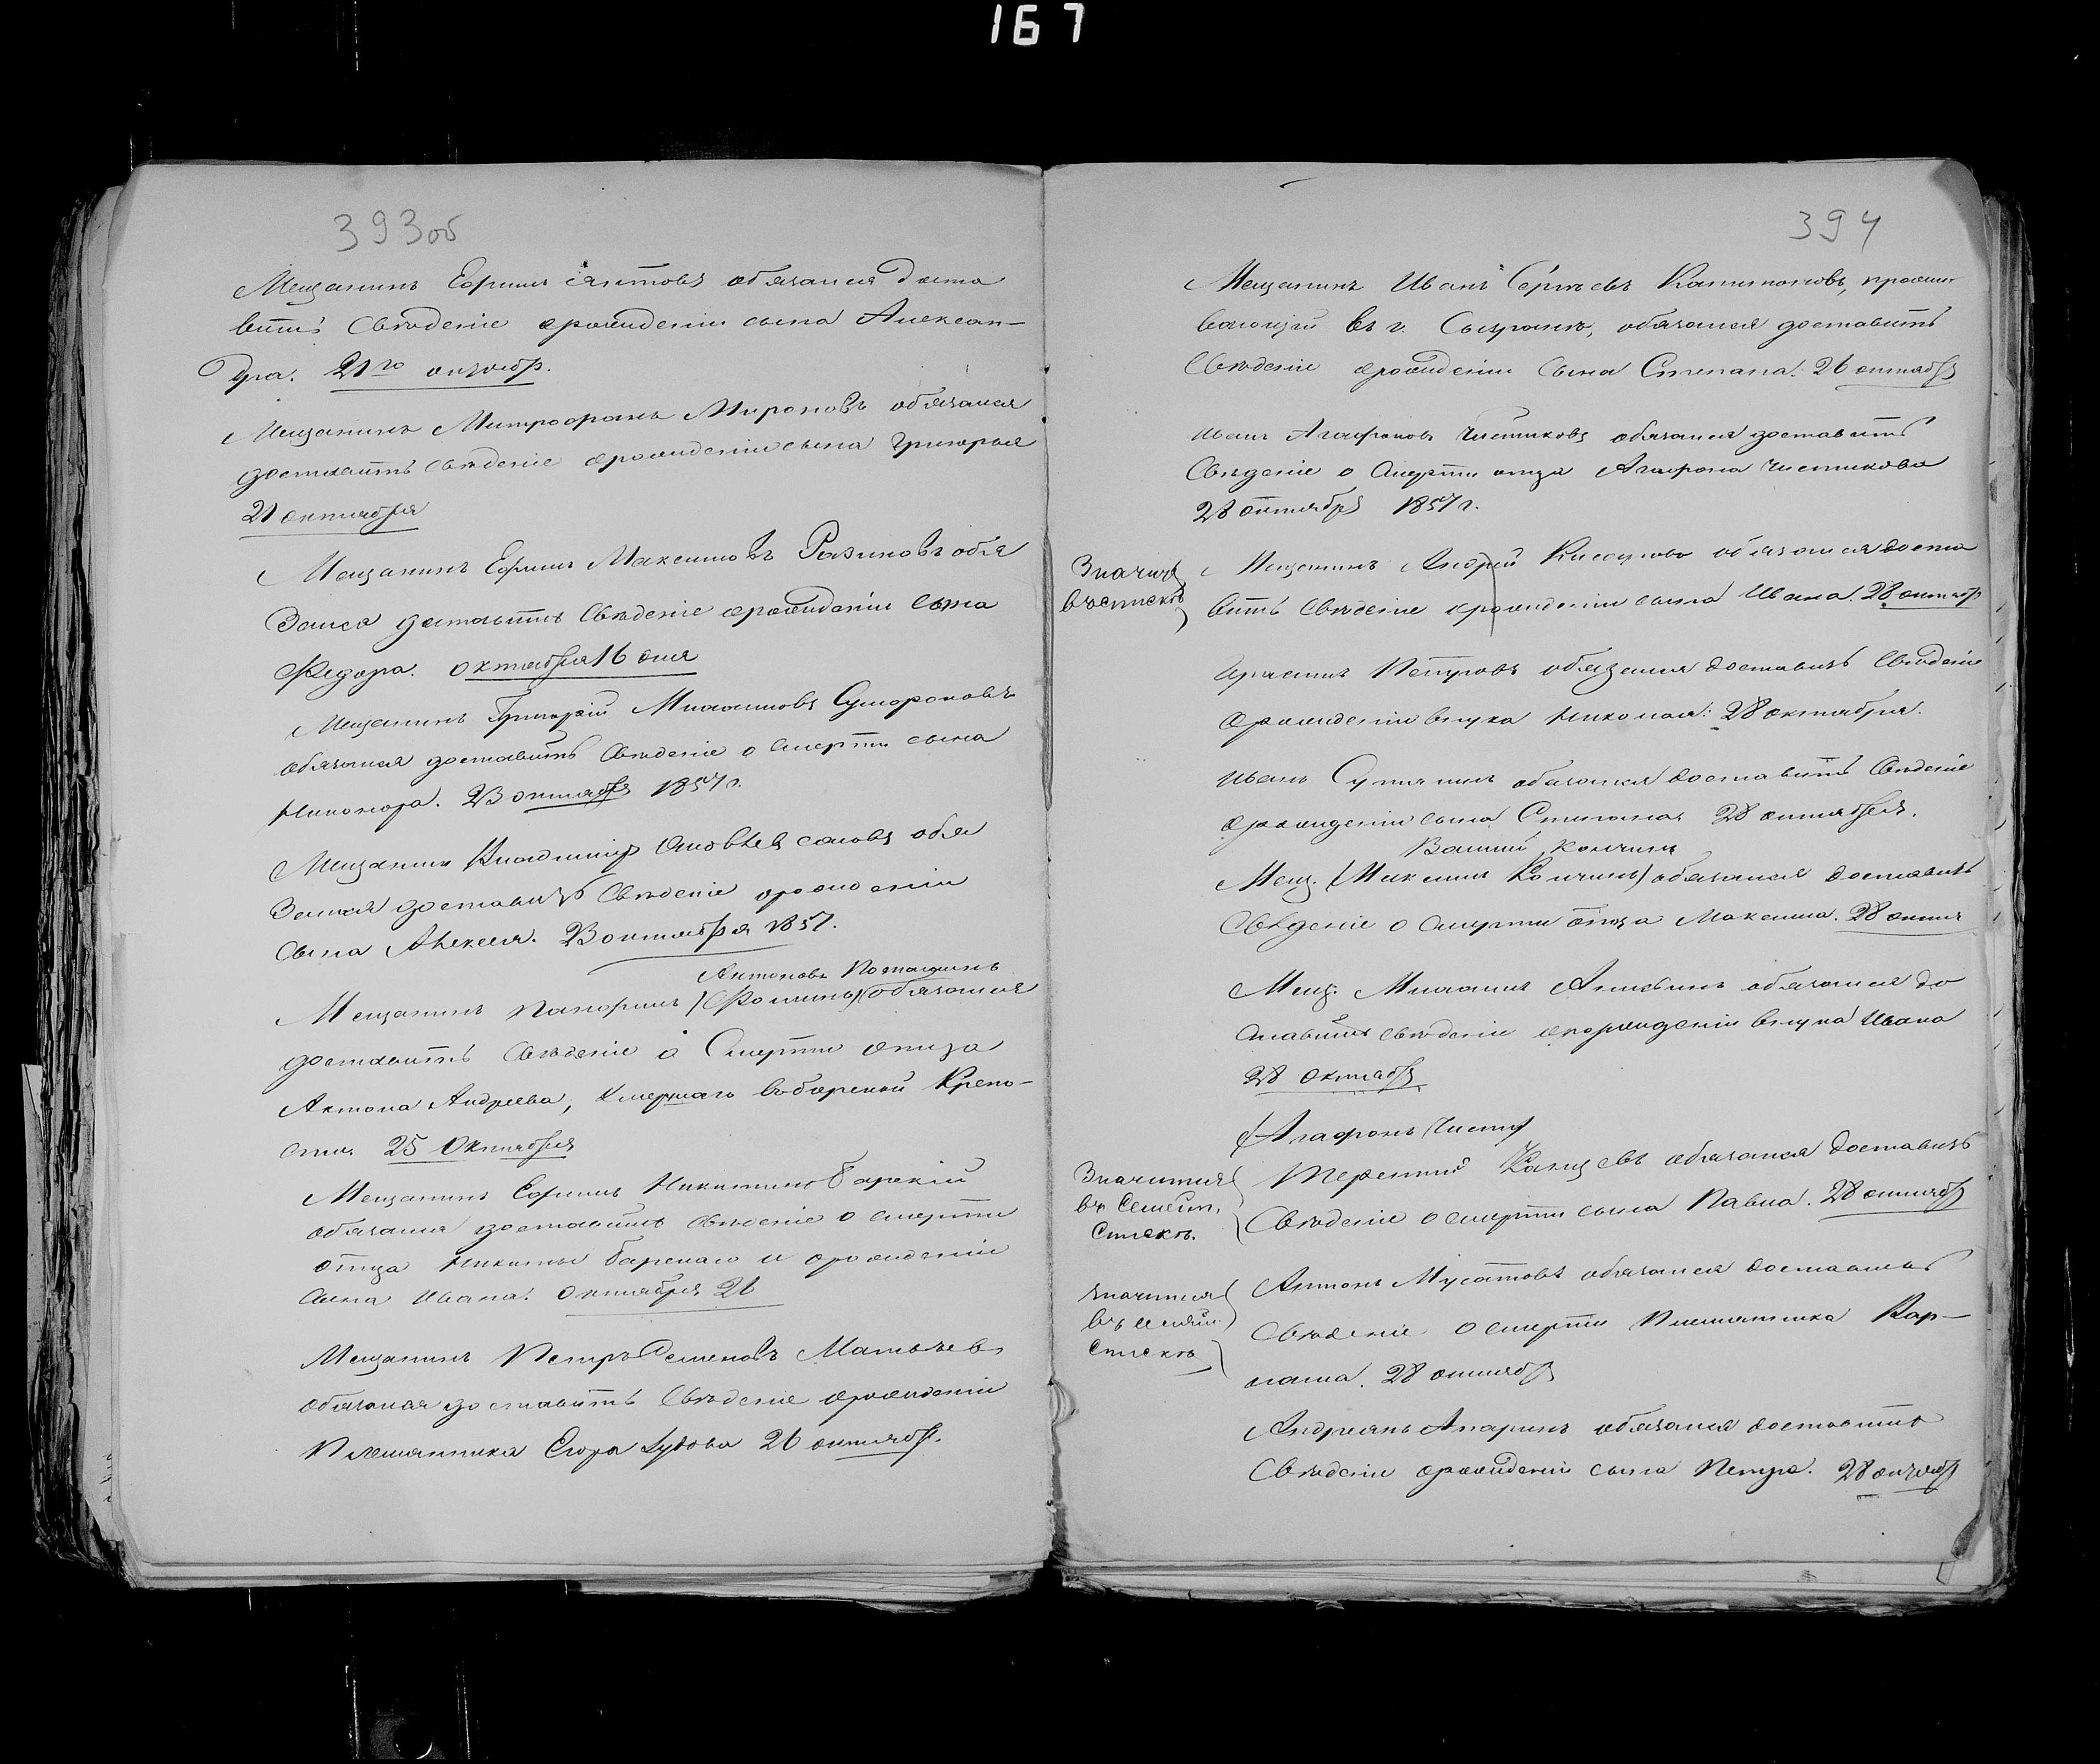 167
393об
Мещанинъ Ефимъ обязался доста
вить свѣденіе орожденіи сына Алексан-
дра. 21го октябр.
Мещанинъ Митрофанъ Мироновъ обязался
доставить свѣденіе орожденіи сына Григорья
21 октября
Мещанинъ Ефимъ Максимовъ Разиновъ обя
зался доставить свѣденіе орожденіи сына
Федора. октября 16 дня
Мещанинъ Григорій Сумароковъ
обязался доставить свѣденіе о смерти сына
Никонора. 23 октября 1857 г.
Мещанинъ Владимиръ обя
зался доставить свѣденіе орожденіи
сына Алексея. 23 октября 1857.
Антоновъ Поташинъ
Мещанинъ Панфилъ (Фоминъ) обязался
доставить свѣденіе о смерти отца
Антона Андреева, умершаго въ Борской Крепо-
сти 25 Октября
Мещанинъ Ефимъ Никитинъ Барскій
обязался доставить свѣденіе о смерти
отца Никиты Барскаго и орожденіи
сына Ивана. Октября 26
Мещанинъ Петръ Семеновъ
обязался доставить свѣденіе орожденіи
Племянника Егора 26 октябр.
394
Мещанинъ Иванъ Сергѣевъ прожи
вающій въ г. Сызранѣ, обязался доставить
свѣденіе орожденіи сына Степана. 26 октября
Иванъ Агафоновъ Чистиковъ обязался доставить
свѣденіе о смерти отца Агафона Чистикова
28 октября 1857 г.
Значится
въ спискѣ
Мещанинъ Андрей обязался доста
вить свѣденіе орожденіи сына Ивана. 28 октяр
Петровъ обязался доставить свѣденіе
орожденіи внука Николая. 28 октября.
Иванъ обязался доставить свѣденіе
орожденіи сына Степана 28 октября.
Кончинъ
Мещ. (Максимъ Кончинъ) обязался доставить
свѣденіе о смерти отца Максима. 28 октя
Мещ. обязался до
ставить свѣденіе орожденіи внука Ивана
28 октября
(Агафонъ Чисти)
Значится
въ Семейн.
спискѣ.
Терентий обязался доставить
свѣденіе о смерти сына Павла. 28 октября
Значится
въ семейн.
спискѣ
Антонъ Мусатовъ обязался доставить
свѣденіе о смерти племянника Вар-
лама. 28 октября
Андреянъ Апаринъ обязался доставить
свѣденіе орожденіи сына Петра. 28 октября